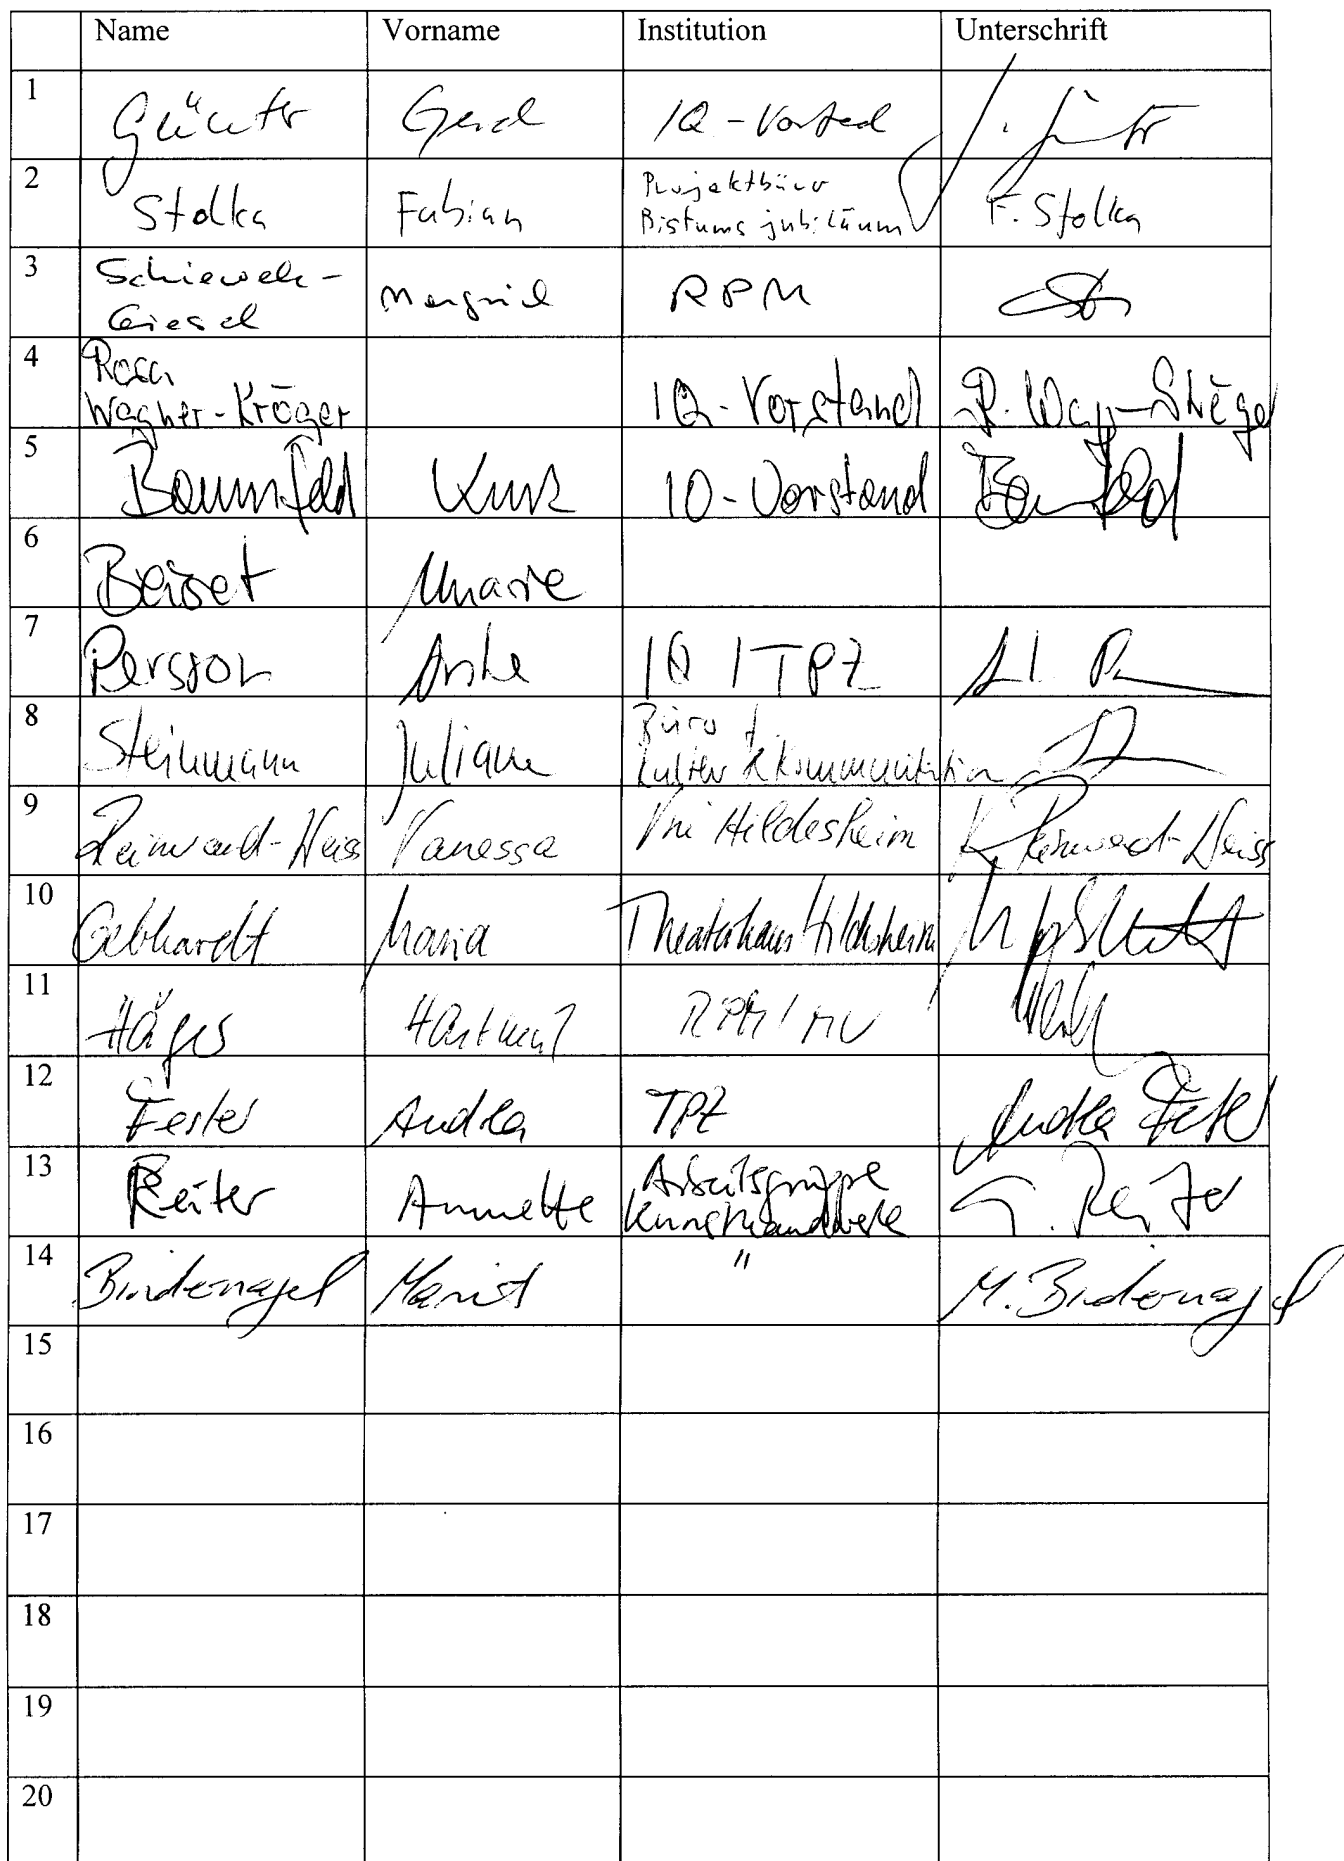 Name Vorname Institution Unterschrift
1 Günter Gerd IQ-Vorstand
2 Stolka Fabian Projektbüro Bistumsjubiläum F. Stolka
3 Schieweck-Giesel Margrid RPM
4 Rosa Wagner-Kröger IQ-Vorstand
5 Baumfeld Kurt IQ-Vorstand Baumfeld
6 Beiset Marie
7 Persson Anke IQ / TPZ
8 Steinmann Juliane Büro f. Kultur & Kommunikation
9 Reinwand-Weiss Vanessa Uni Hildesheim V. Reinwand-Weiss
10 Gebhardt Maria Theaterhaus Hildesheim
11 Häger Hartmut RPM / MV
12 Fester Andrea TPZ Andrea Fester
13 Reiter Annette Arbeitsgruppe Kunsthandwerk A. Reiter
14 Bindernagel Marist " M. Bindernagel
15
16
17
18
19
20